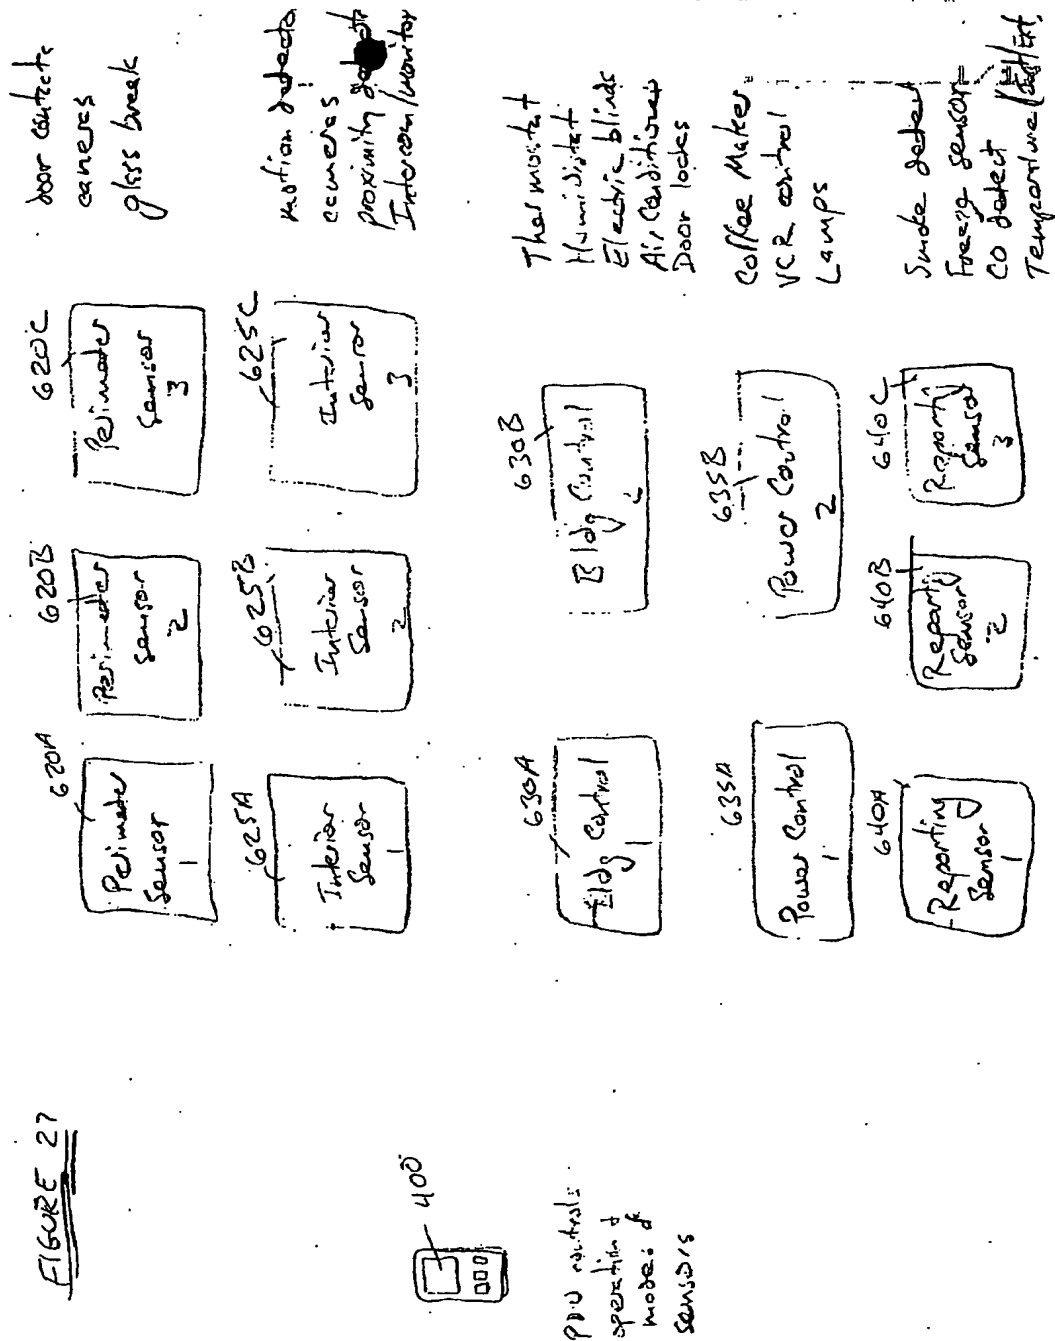 FIGURE 27
400
PDU controls
operation &
modes of
sensors
620A
Perimeter
Sensor
1
620B
Perimeter
Sensor
2
620C
Perimeter
Sensor
3
door contacts
cameras
glass break
625A
Interior
Sensor
1
625B
Interior
Sensor
2
625C
Interior
Sensor
3
motion detecto
cameras
proximity
Intercom/monitor
630A
Bldg Control
1
630B
Bldg Control
Thermostat
Humidistat
Electric blinds
Air Conditioner
Door locks
635A
Power Control
1
635B
Power Control
2
Coffee Maker
VCR control
Lamps
640A
Reporting
Sensor
1
640B
Reporting
Sensor
2
640C
Reporting
Sensor
3
Smoke detect
Freeze sensor
CO detect
Temperature